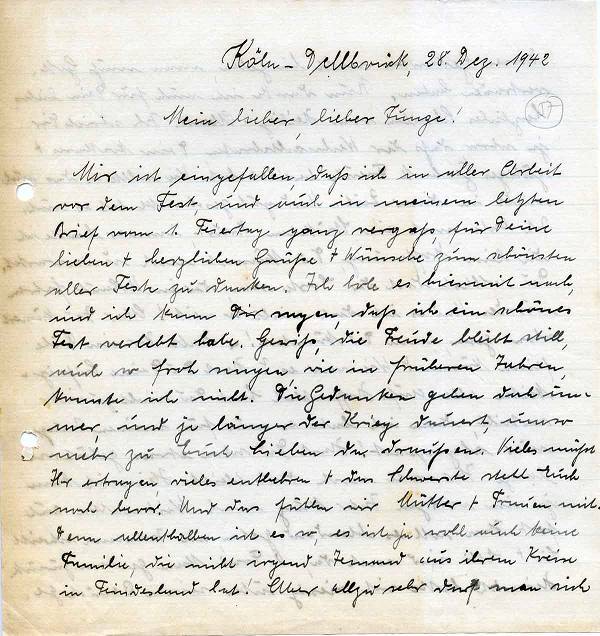 Köln-Dellbrück, 28. Dez. 1942
Mein lieber, lieber Junge!
Mir ist eingefallen, daß ich in aller Arbeit
vor dem Fest, und auch in meinem letzten
Brief vom 1. Feiertag ganz vergaß, für Deine
lieben + herzlichen Grüße + Wünsche zum schönsten
aller Feste zu danken. Ich hole es hiermit nach,
und ich kann Dir sagen, daß ich ein schönes
Fest verlebt habe. Gewiß, die Freude bleibt still,
auch so froh singen, wie in früheren Jahren,
konnte ich nicht. Die Gedanken gehen doch im-
mer, und je länger der Krieg dauert, umso
mehr zu Euch Lieben da draußen. Vieles müßt
Ihr ertragen vieles entbehren + das Schwerste steht Euch
noch bevor. Und das fühlen wir Mütter + Frauen mit.
Denn allenthalben ist es so, es ist ja wohl auch keine
Familie, die nicht irgend Jemand aus ihrem Kreise
in Feindesland hat! Aber allzu sehr darf man sich